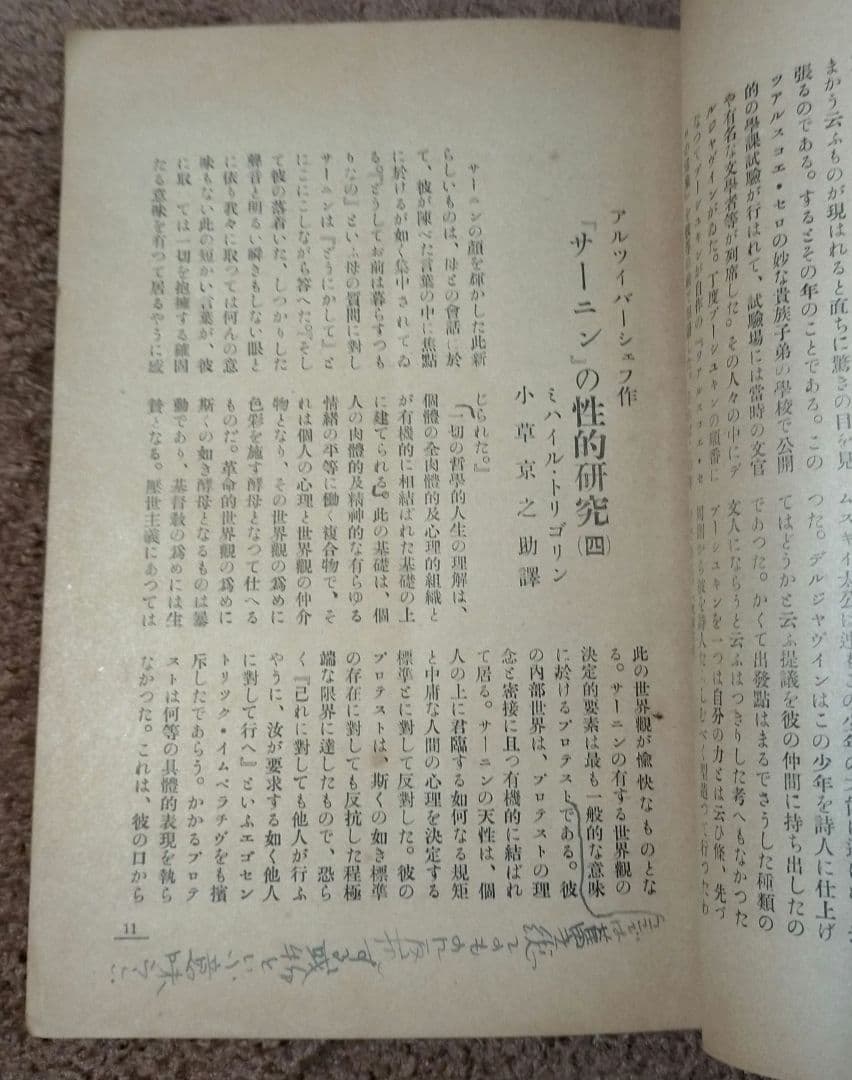 まかう云ふものが現はれると直ちに驚きの目を見
張るのである。するとその年のことである。この
ツアルスコエ・セロの妙な貴族子弟の學校で公開
的の學課試驗が行はれて、試驗場には當時の文官
や有名な文學者等が列席した。その人々の中にデ
ルジャヴインがゐた。丁度プーシユキンの順番に
つた。デルジャヴインはこの少年を詩人に仕上げ
てはどうかと云ふ提議を彼の仲間に持ち出したの
であつた。かくて出發點はまるでさうした種類の
文人にならうと云ふはつきりした考へもなかつた
プーシユキンを一つは自分の力とは云ひ條、先づ
アルツイバーシェフ作
『サーニン』の性的研究(四)
ミハイル・トリゴリン
小草京之助譯
サーニンの顏を輝かした此新
らしいものは、母との會話に於
て、彼が陳べた言葉の中に焦點
に於けるが如く集中されてゐ
る。『どうしてお前は暮らすつも
りなの』といふ母の質問に對し
サーニンは『どうにかして』と
にこにこしながら答へた。『そし
て彼の落着いた、しつかりした
聲音と明るい瞬きもしない眼と
に依り我々に取つては何んの意
味もない此の短かい言葉が、彼
に取 ては一切を抱擁する確固
たる意味を有つて居るやうに感
じられた。』
「一切の哲學的人生の理解は、
個體の全肉體的及心理的組織と
が有機的に相結ばれた基礎の上
に建てられる』。此の基礎は、個
人の肉體的及精神的な有らゆる
情緒の平等に働く複合物で、そ
れは個人の心理と世界觀の仲介
物となり、その世界觀の爲めに
色彩を施す酵母となつて仕へる
ものだ。革命的世界觀の爲めに
斯くの如き酵母となるものは暴
動であり、基督教の爲めには生
贄となる。厭世主義にあつては
此の世界觀が愉快なものとな
る。サーニンの有する世界觀の
決定的要素は最も一般的な意味
に於けるプロテストである。彼
の內部世界は、プロテストの理
念と密接に且つ有機的に結ばれ
て居る。サーニンの天性は、個
人の上に君臨する如何なる規矩
と中庸な人間の心理を決定する
標準とに對して反對した。彼の
プロテストは、斯くの如き標準
の存在に對しても反抗した程極
端な限界に達したもので、恐ら
く『己れに對しても他人が行ふ
やうに、汝が要求する如く他人
に對して行へ』といふエゴセン
トリツク・イムペラチヴをも擯
斥したであらう。かかるプロテ
ストは何等の具體的表現を執ら
なかつた。これは、彼の口から
11